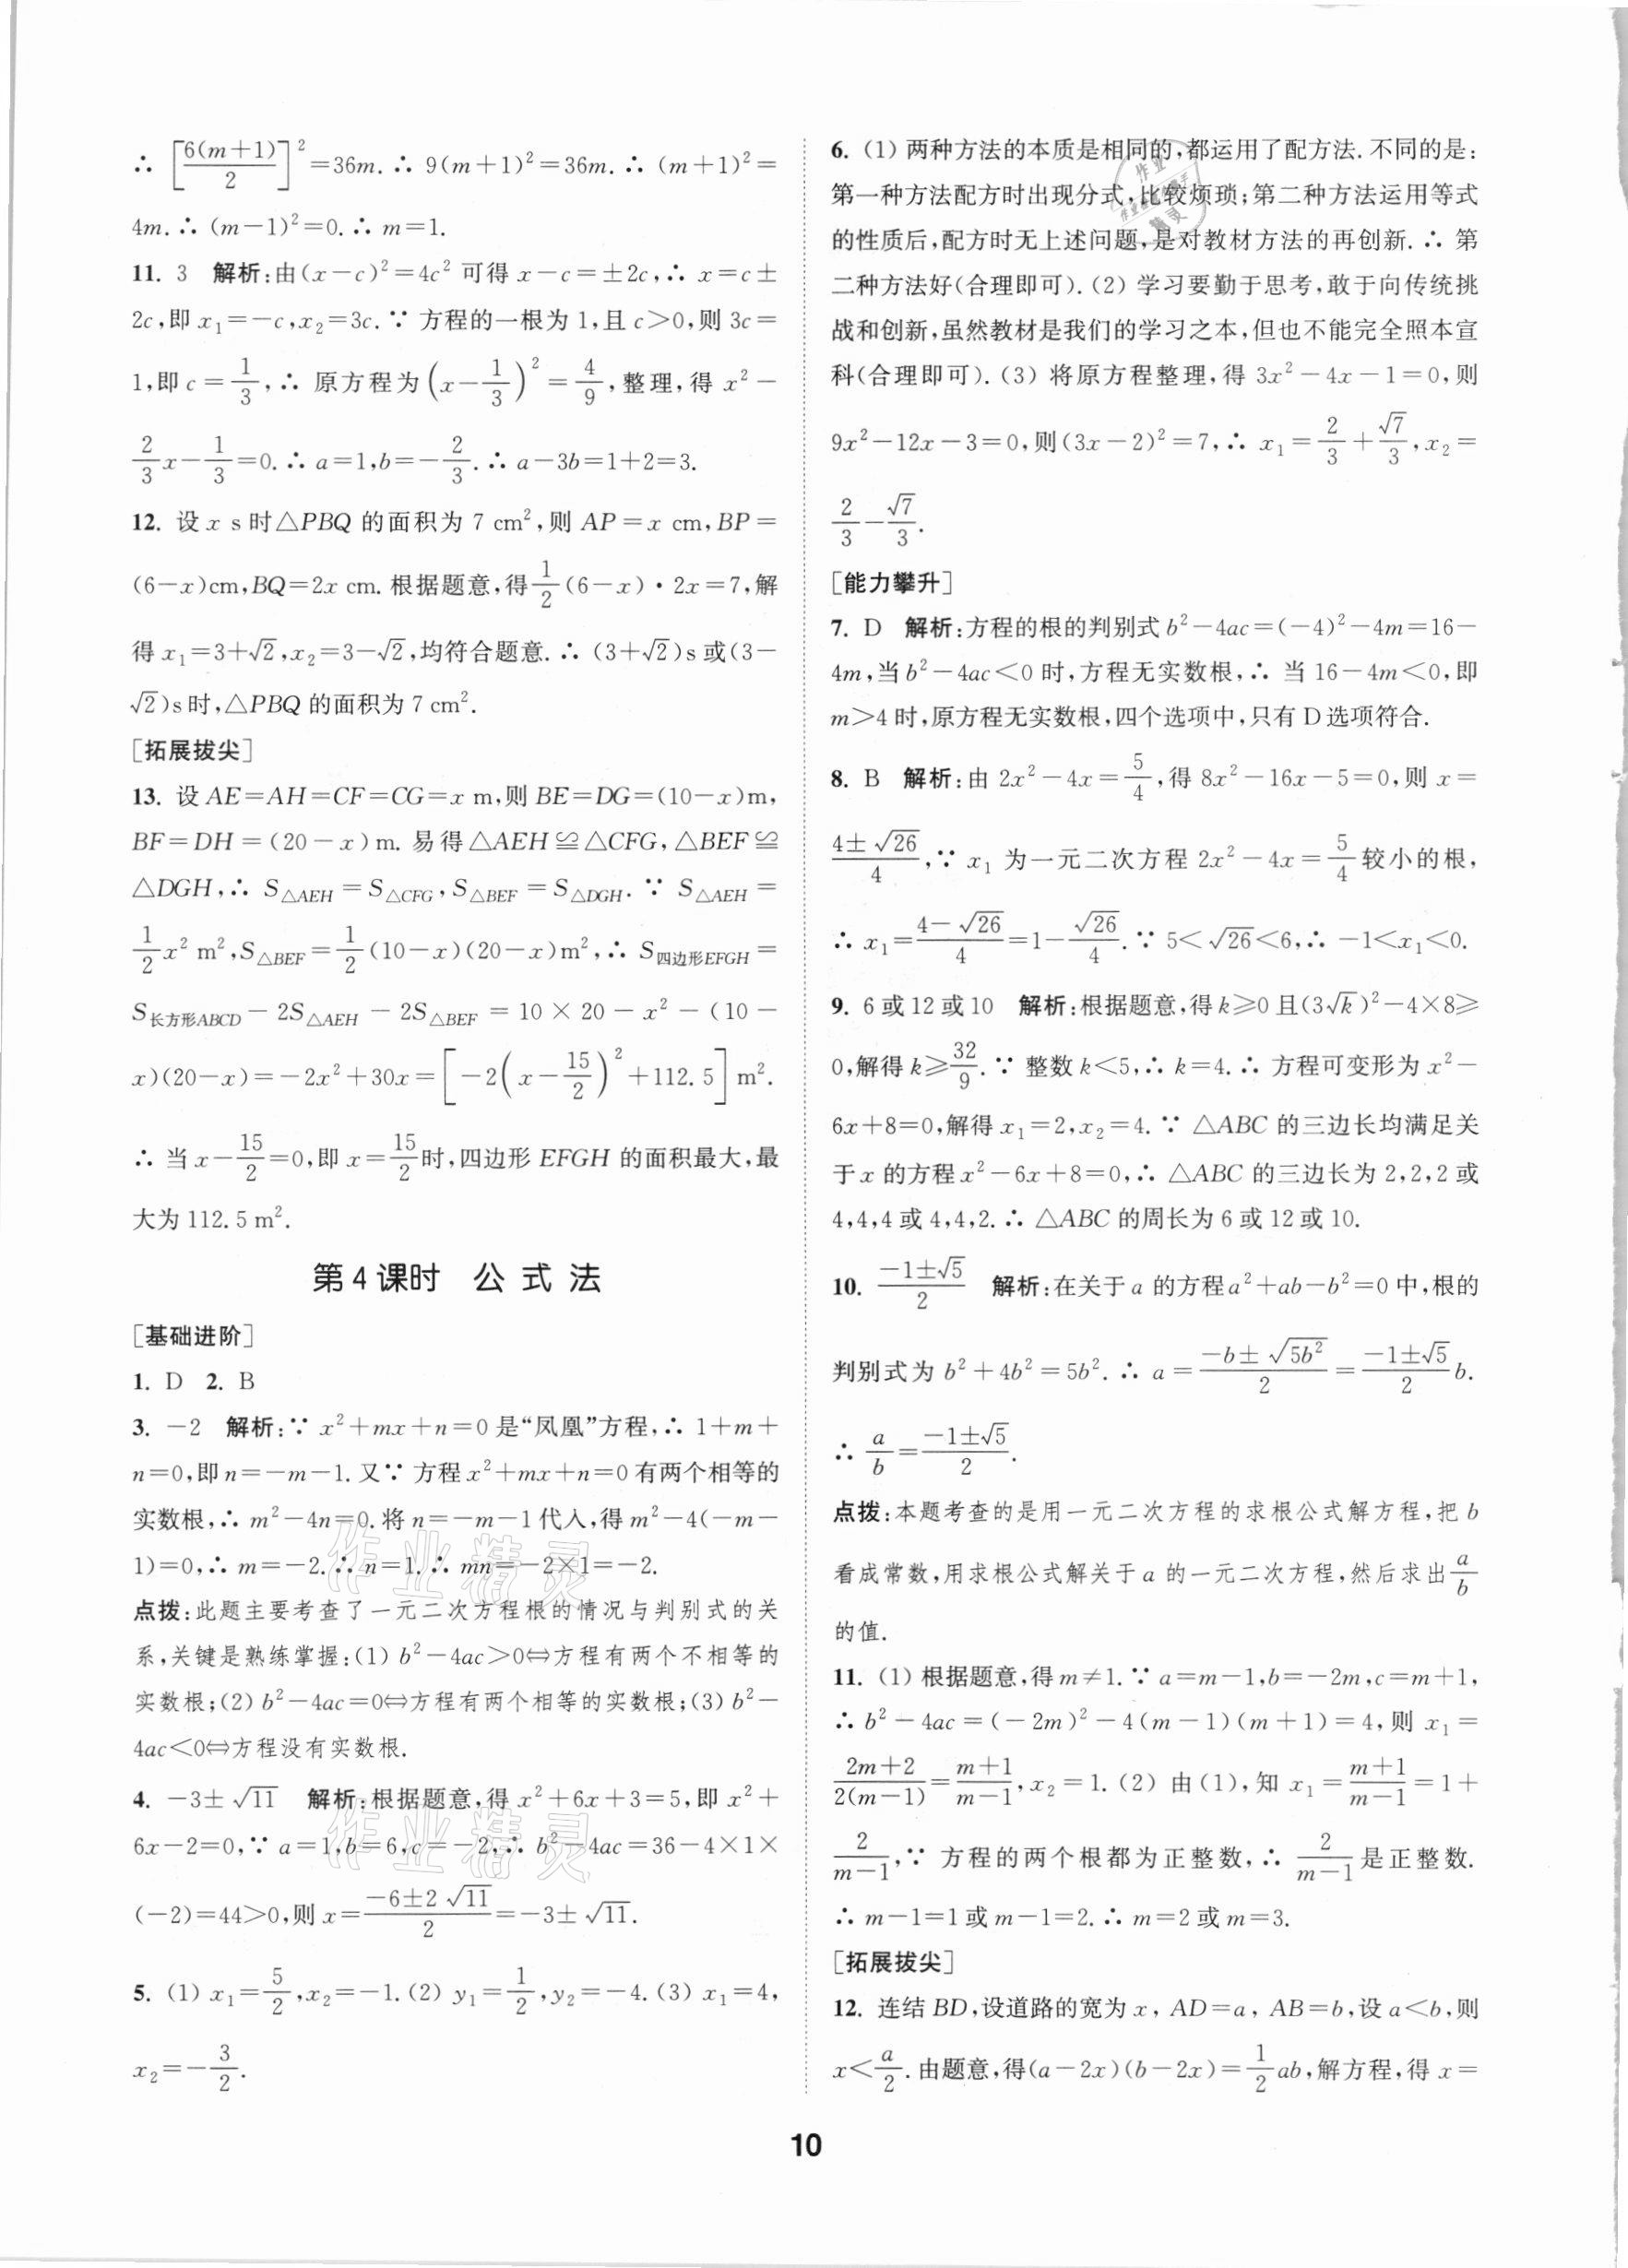 ∴ [6(m+1)/2]²=36m. ∴ 9(m+1)²=36m. ∴ (m+1)²=
4m. ∴ (m-1)²=0. ∴ m=1.
11. 3 解析:由(x-c)²=4c² 可得 x-c=±2c, ∴ x=c±
2c,即 x₁=-c,x₂=3c. ∵ 方程的一根为 1,且 c>0,则 3c=
1,即 c=1/3, ∴ 原方程为(x-1/3)²=4/9,整理,得 x²-
2/3x-1/3=0. ∴ a=1,b=-2/3. ∴ a-3b=1+2=3.
12. 设 x s 时△PBQ 的面积为 7 cm²,则 AP=x cm,BP=
(6-x)cm,BQ=2x cm. 根据题意,得1/2(6-x)·2x=7,解
得 x₁=3+√2,x₂=3-√2,均符合题意. ∴ (3+√2)s 或(3-
√2)s 时,△PBQ 的面积为 7 cm².
[拓展拔尖]
13. 设 AE=AH=CF=CG=x m,则 BE=DG=(10-x)m,
BF=DH=(20-x)m. 易得△AEH≌△CFG,△BEF≌
△DGH, ∴ S△AEH=S△CFG,S△BEF=S△DGH. ∵ S△AEH=
1/2x² m²,S△BEF=1/2(10-x)(20-x)m², ∴ S四边形EFGH=
S长方形ABCD-2S△AEH-2S△BEF=10×20-x²-(10-
x)(20-x)=-2x²+30x=[-2(x-15/2)²+112.5]m².
∴ 当 x-15/2=0,即 x=15/2时,四边形 EFGH 的面积最大,最
大为 112.5 m².
第 4 课时 公 式 法
[基础进阶]
1. D 2. B
3. -2 解析: ∵ x²+mx+n=0 是“凤凰”方程, ∴ 1+m+
n=0,即 n=-m-1. 又∵ 方程 x²+mx+n=0 有两个相等的
实数根, ∴ m²-4n=0. 将 n=-m-1 代入,得 m²-4(-m-
1)=0, ∴ m=-2. ∴ n=1. ∴ mn=-2×1=-2.
点拨:此题主要考查了一元二次方程根的情况与判别式的关
系,关键是熟练掌握:(1) b²-4ac>0⇔方程有两个不相等的
实数根;(2) b²-4ac=0⇔方程有两个相等的实数根;(3) b²-
4ac<0⇔方程没有实数根.
4. -3±√11 解析:根据题意,得 x²+6x+3=5,即 x²+
6x-2=0, ∵ a=1,b=6,c=-2, ∴ b²-4ac=36-4×1×
(-2)=44>0,则 x=(-6±2√11)/2=-3±√11.
5. (1) x₁=5/2,x₂=-1. (2) y₁=1/2,y₂=-4. (3) x₁=4,
x₂=-3/2.
6. (1) 两种方法的本质是相同的,都运用了配方法. 不同的是:
第一种方法配方时出现分式,比较烦琐;第二种方法运用等式
的性质后,配方时无上述问题,是对教材方法的再创新. ∴ 第
二种方法好(合理即可). (2) 学习要勤于思考,敢于向传统挑
战和创新,虽然教材是我们的学习之本,但也不能完全照本宣
科(合理即可). (3) 将原方程整理,得 3x²-4x-1=0,则
9x²-12x-3=0,则(3x-2)²=7, ∴ x₁=2/3+√7/3,x₂=
2/3-√7/3.
[能力攀升]
7. D 解析:方程的根的判别式 b²-4ac=(-4)²-4m=16-
4m,当 b²-4ac<0 时,方程无实数根, ∴ 当 16-4m<0,即
m>4 时,原方程无实数根,四个选项中,只有 D 选项符合.
8. B 解析:由 2x²-4x=5/4,得 8x²-16x-5=0,则 x=
(4±√26)/4, ∵ x₁ 为一元二次方程 2x²-4x=5/4较小的根,
∴ x₁=(4-√26)/4=1-√26/4. ∵ 5<√26<6, ∴ -1<x₁<0.
9. 6 或 12 或 10 解析:根据题意,得 k≥0 且(3√k)²-4×8≥
0,解得 k≥32/9. ∵ 整数 k<5, ∴ k=4. ∴ 方程可变形为 x²-
6x+8=0,解得 x₁=2,x₂=4. ∵ △ABC 的三边长均满足关
于 x 的方程 x²-6x+8=0, ∴ △ABC 的三边长为 2,2,2 或
4,4,4 或 4,4,2. ∴ △ABC 的周长为 6 或 12 或 10.
10. (-1±√5)/2 解析:在关于 a 的方程 a²+ab-b²=0 中,根的
判别式为 b²+4b²=5b². ∴ a=(-b±√5b²)/2=(-1±√5)/2 b.
∴ a/b=(-1±√5)/2.
点拨:本题考查的是用一元二次方程的求根公式解方程,把 b
看成常数,用求根公式解关于 a 的一元二次方程,然后求出a/b
的值.
11. (1) 根据题意,得 m≠1. ∵ a=m-1,b=-2m,c=m+1,
∴ b²-4ac=(-2m)²-4(m-1)(m+1)=4,则 x₁=
(2m+2)/2(m-1)=(m+1)/(m-1),x₂=1. (2) 由(1),知 x₁=(m+1)/(m-1)=1+
2/(m-1), ∵ 方程的两个根都为正整数, ∴ 2/(m-1)是正整数.
∴ m-1=1 或 m-1=2. ∴ m=2 或 m=3.
[拓展拔尖]
12. 连结 BD,设道路的宽为 x, AD=a, AB=b,设 a<b,则
x<a/2. 由题意,得(a-2x)(b-2x)=1/2ab,解方程,得 x=
10
作业精灵
作业精灵